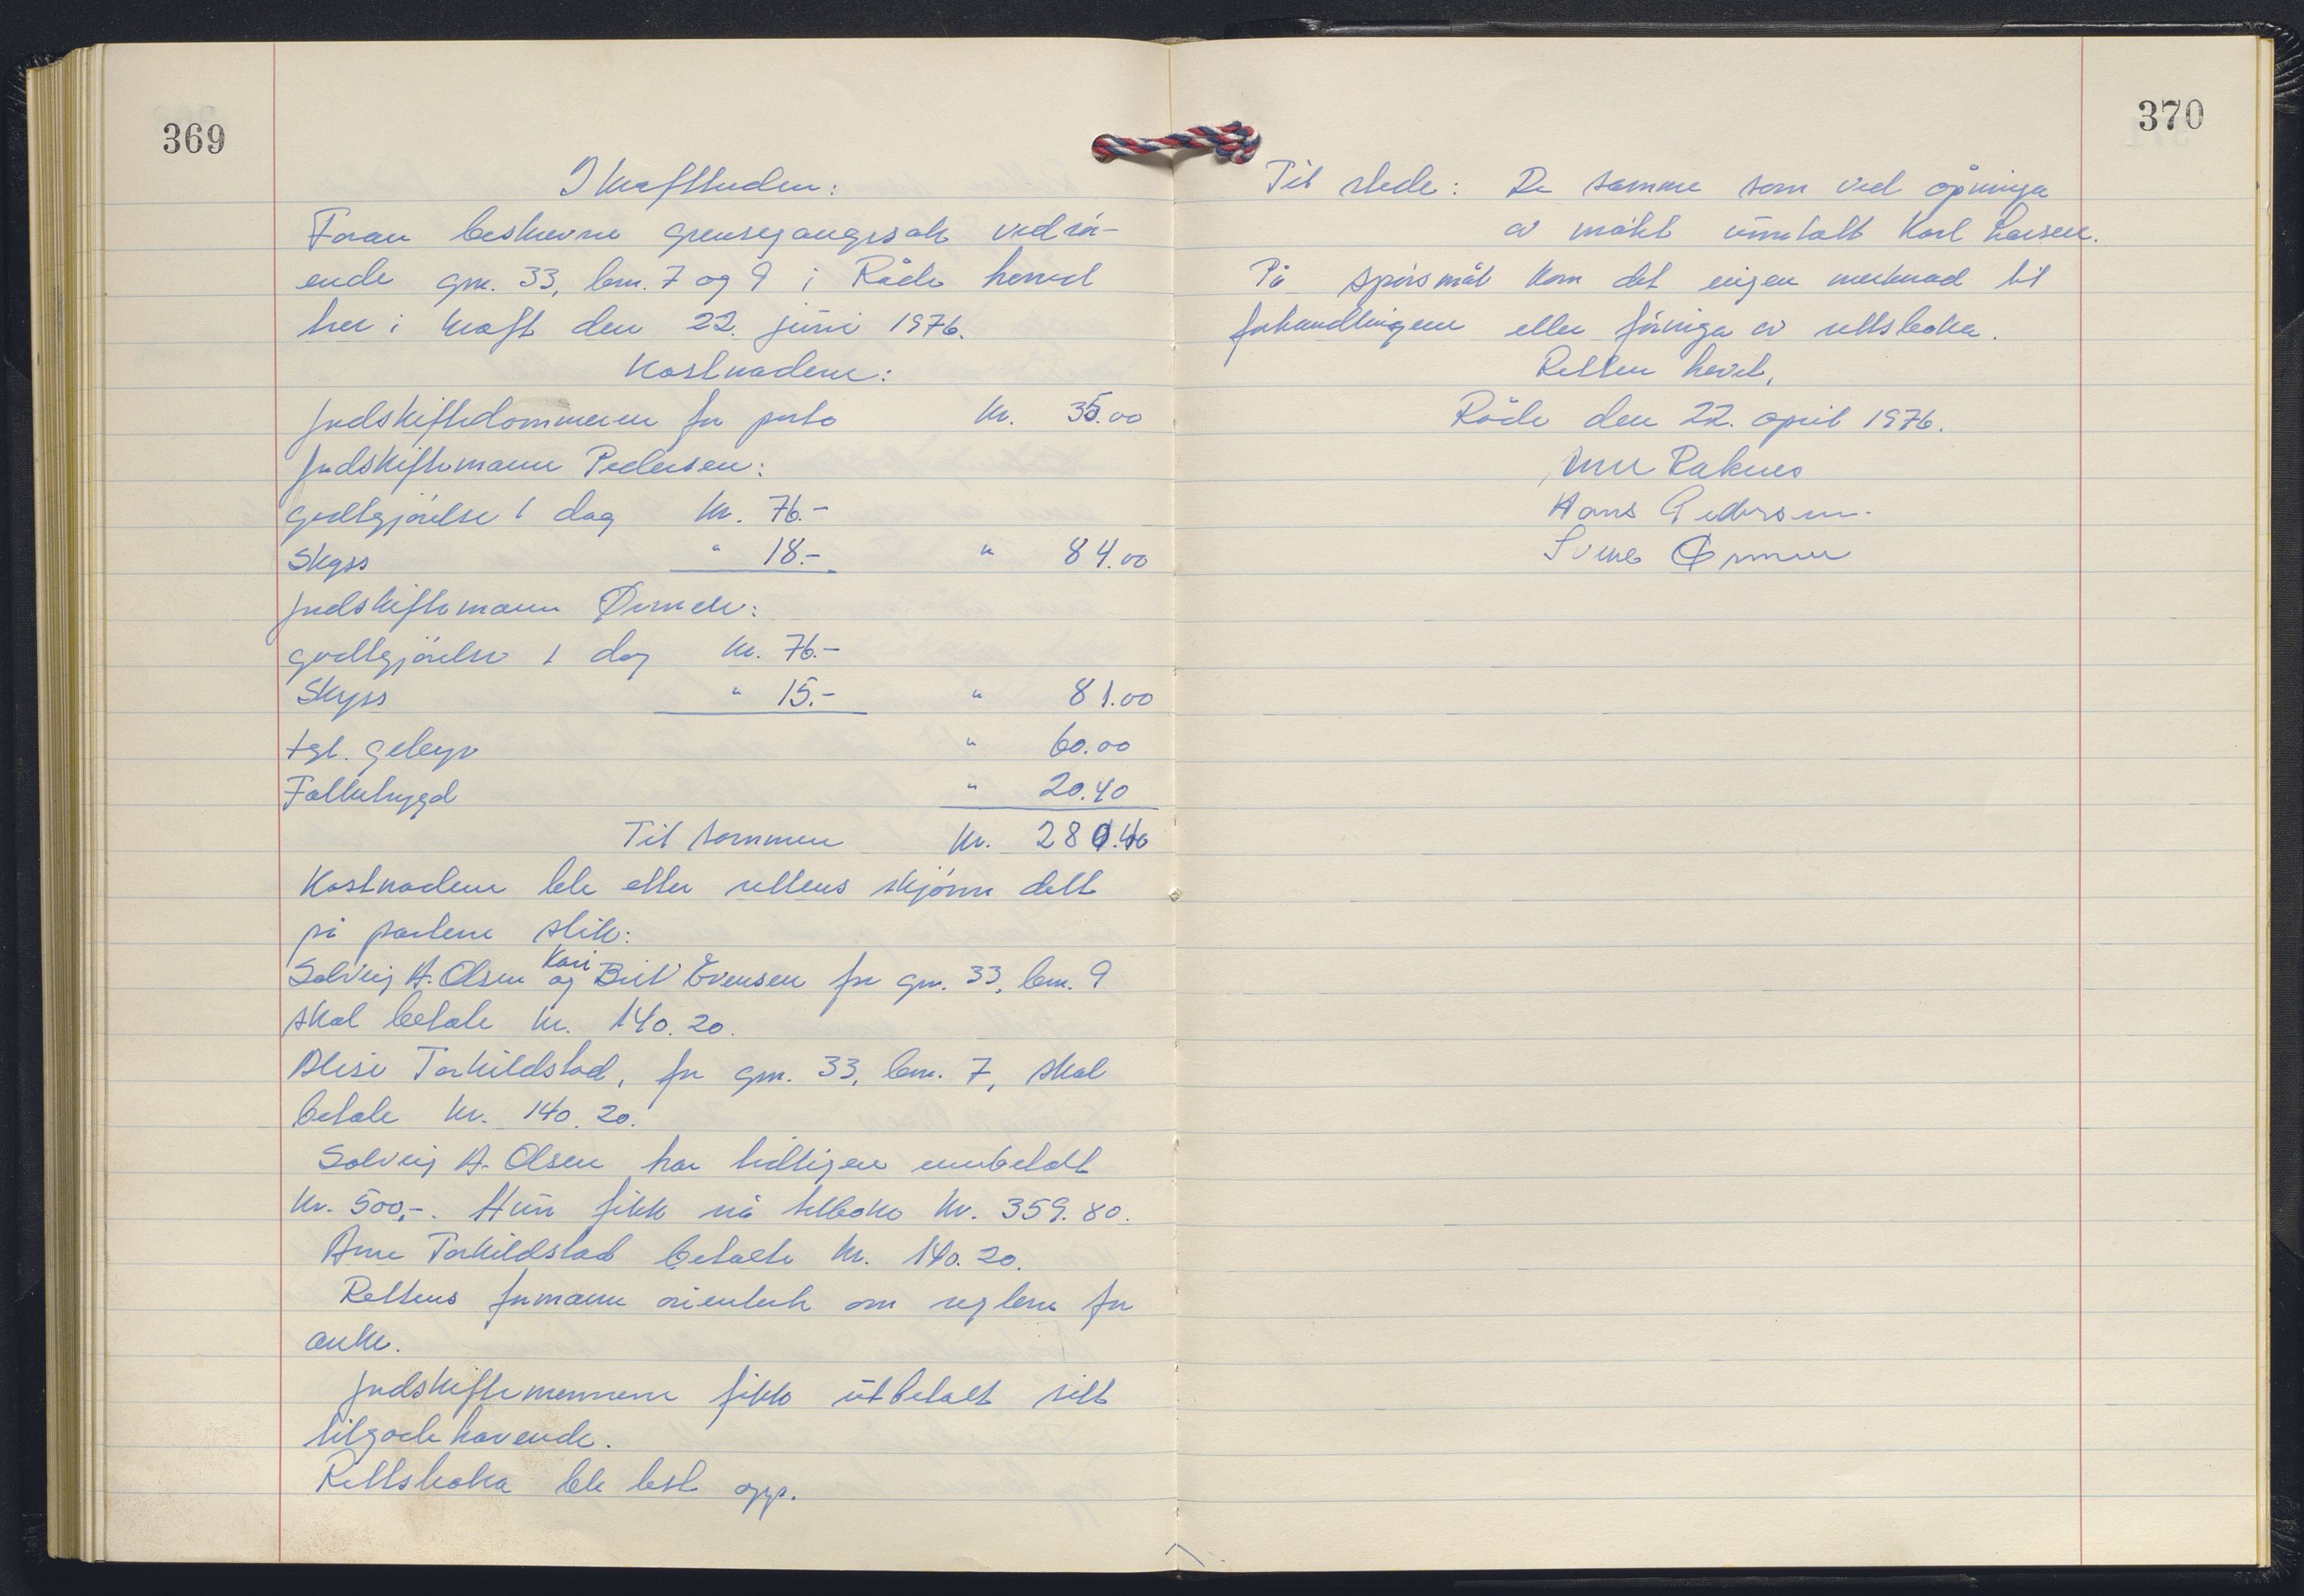 369
Ikrafttreden:
Foran beskrevne grensegangssak vedrør-
ende gnr. 33, bnr. 7 og 9 i Råde herred
trer i kraft den 22. juni 1976.
Kostnadene:
Jordskiftedommeren for porto kr. 35.00
Jordskiftemann Pedersen:
godtgjørelse 1 dag kr. 76.-
Skyss " 18.- " 84.00
Jordskiftemann Ørmen:
godtgjørelse 1 dag kr. 76.-
Skyss " 15.- " 81.00
tgl. gebyr " 60.00
Folketrygd " 20.40
Til sammen kr. 280.40
Kostnadene ble etter rettens skjønn delt
på partene slik:
Solveig A. Olsen og Kari Brit Evensen for gnr. 33, bnr. 9
skal betale kr. 140.20.
Alise Torkildstad, for gnr. 33, bnr. 7, skal
betale kr. 140.20.
Solveig A. Olsen har tidligere innbetalt
kr. 500,-. Hun fikk nå tilbake kr. 359.80.
Arne Torkildstad betalte kr. 140.20.
Rettens formann orienterte om reglene for
anke.
Jordskiftemennene fikk utbetalt sitt
tilgodehavende.
Rettsboka ble lest opp.
370
Til stede: De samme som ved åpninga
av møtet unntatt Karl Larsen.
På spørsmål kom det ingen merknad til
forhandlingene eller føringa av rettsboka.
Retten hevet,
Råde den 22. april 1976.
Raknes
Hans Pedersen.
Ørmen